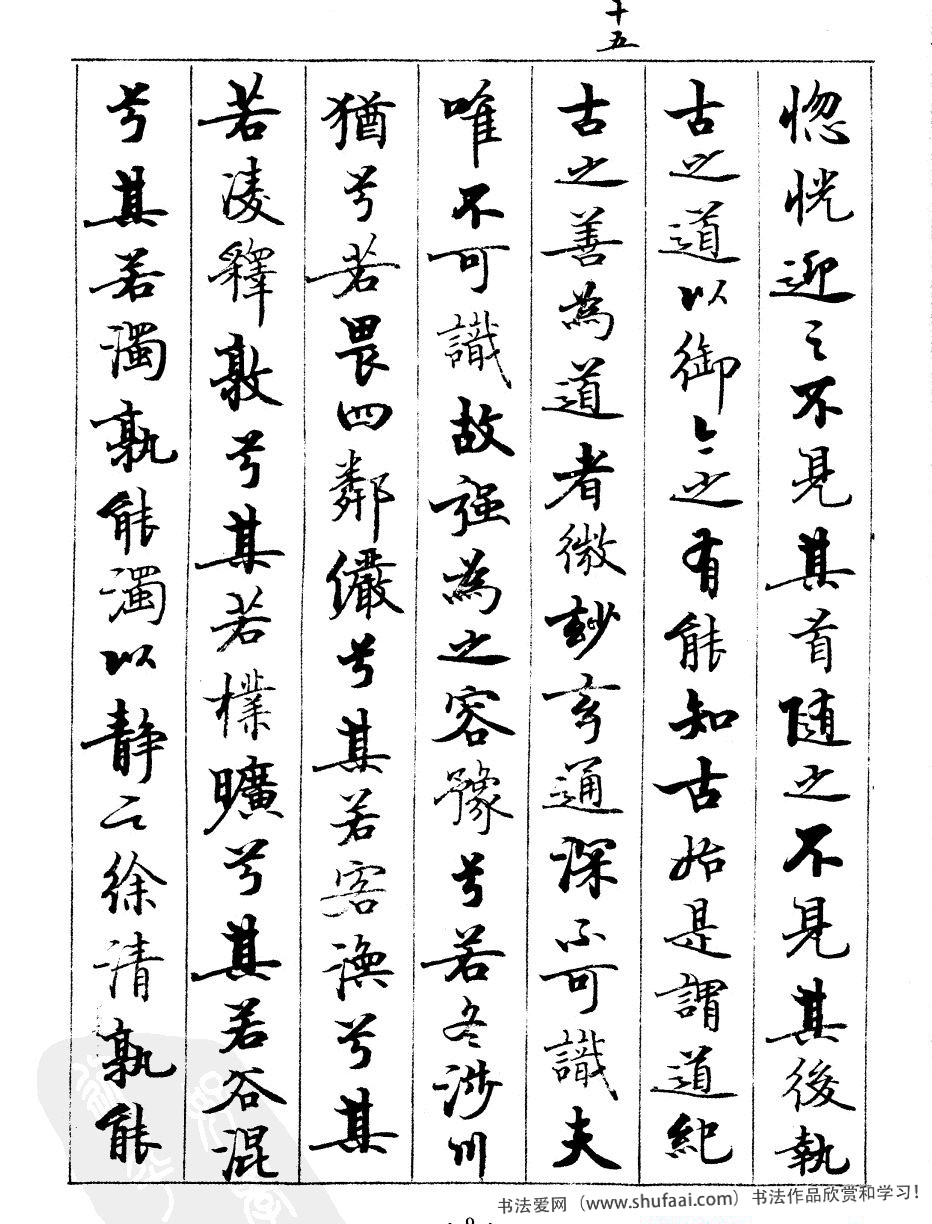 十五
惚恍迎之不見其首随之不見其後執
古之道以御今之有能知古始是謂道紀
古之善為道者微妙玄通深不可識夫
唯不可識故強為之容豫兮若冬涉川
猶兮若畏四鄰儼兮其若客渙兮其
若凌釋敦兮其若樸曠兮其若谷混
兮其若濁孰能濁以静之徐清孰能
书法爱网（www.shufaai.com）书法作品欣赏和学习！